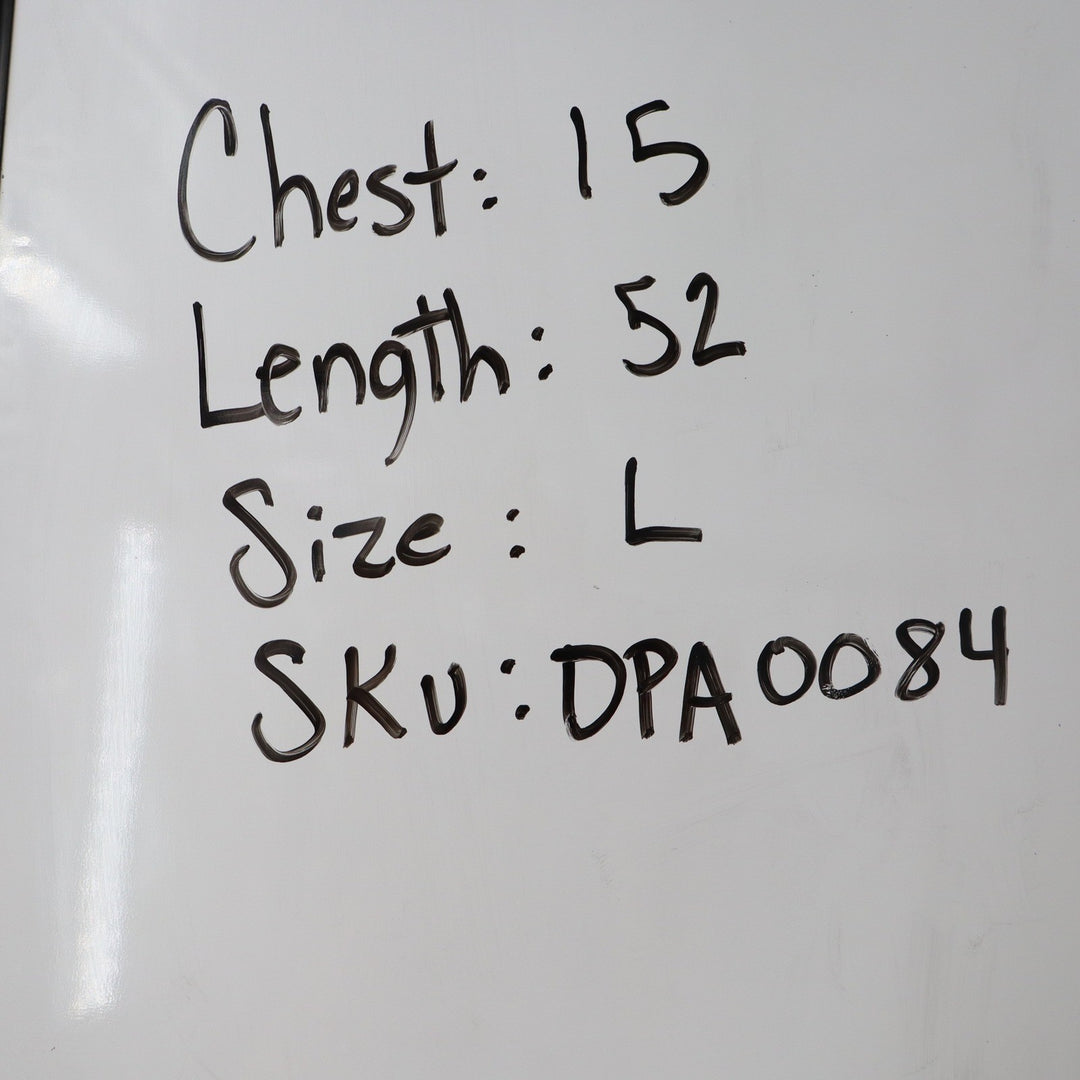 Chest: 15
Length: 52
Size: L
SKU: DPA0084